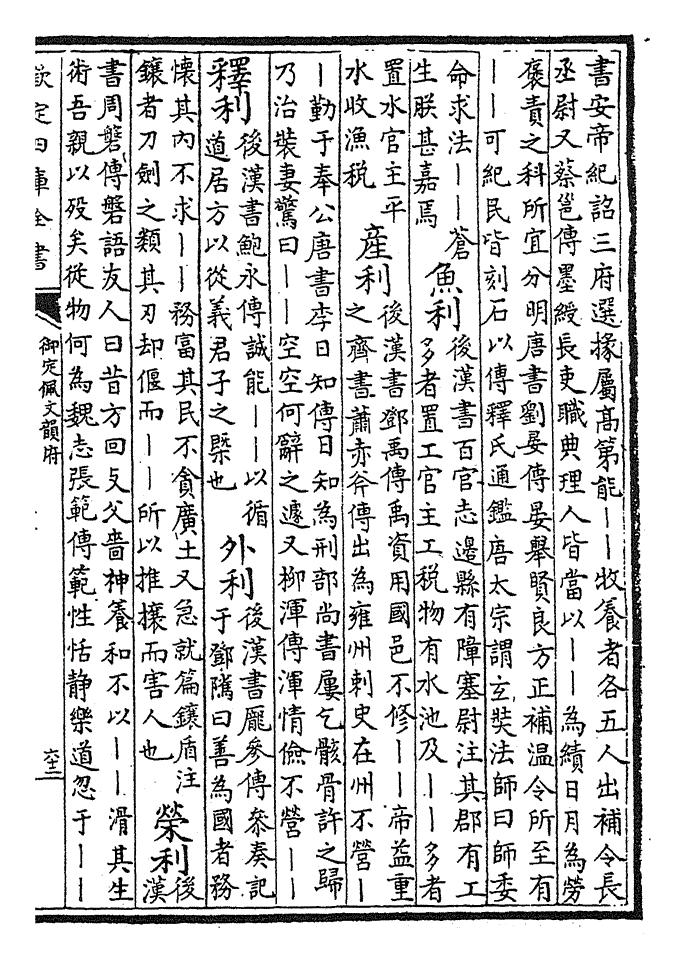 書安帝紀詔三府選掾屬髙第能——牧養者各五人出補令長
丞尉又蔡邕傳墨綬長吏職典理人皆當以——為績日月為勞
褒責之科所宜分明唐書劉晏傳晏舉賢良方正補温令所至有
——可紀民皆刻石以傳釋氏通鑑唐太宗謂玄奘法師曰師委
命求法——蒼
生朕甚嘉焉
魚利
後漢書百官志邊縣有障塞尉注其郡有工
多者置工官主工税物有水池及——多者
置水官主平
水收漁税
産利
後漢書鄧禹傳禹資用國邑不修——帝益重
之齊書蕭赤斧傳出為雍州刺史在州不營—
—勤于奉公唐書李日知傳日知為刑部尚書屢乞骸骨許之歸
乃治裝妻驚曰——空空何辭之遽又柳渾傳渾情儉不營——
釋利
後漢書鮑永傳誠能——以循
道居方以從義君子之槩也
外利
後漢書龎參傳參奏記
于鄧隲曰善為國者務
懷其內不求——務富其民不貪廣土又急就篇鑲盾注
鑲者刀劍之類其刃却偃而——所以推攘而害人也
榮利
後
漢
書周磐傳磐語友人曰昔方回支父嗇神養和不以——滑其生
術吾親以歿矣從物何為魏志張範傳範性恬静樂道忽于——
欽定四庫全書
御定佩文韻府
六十二